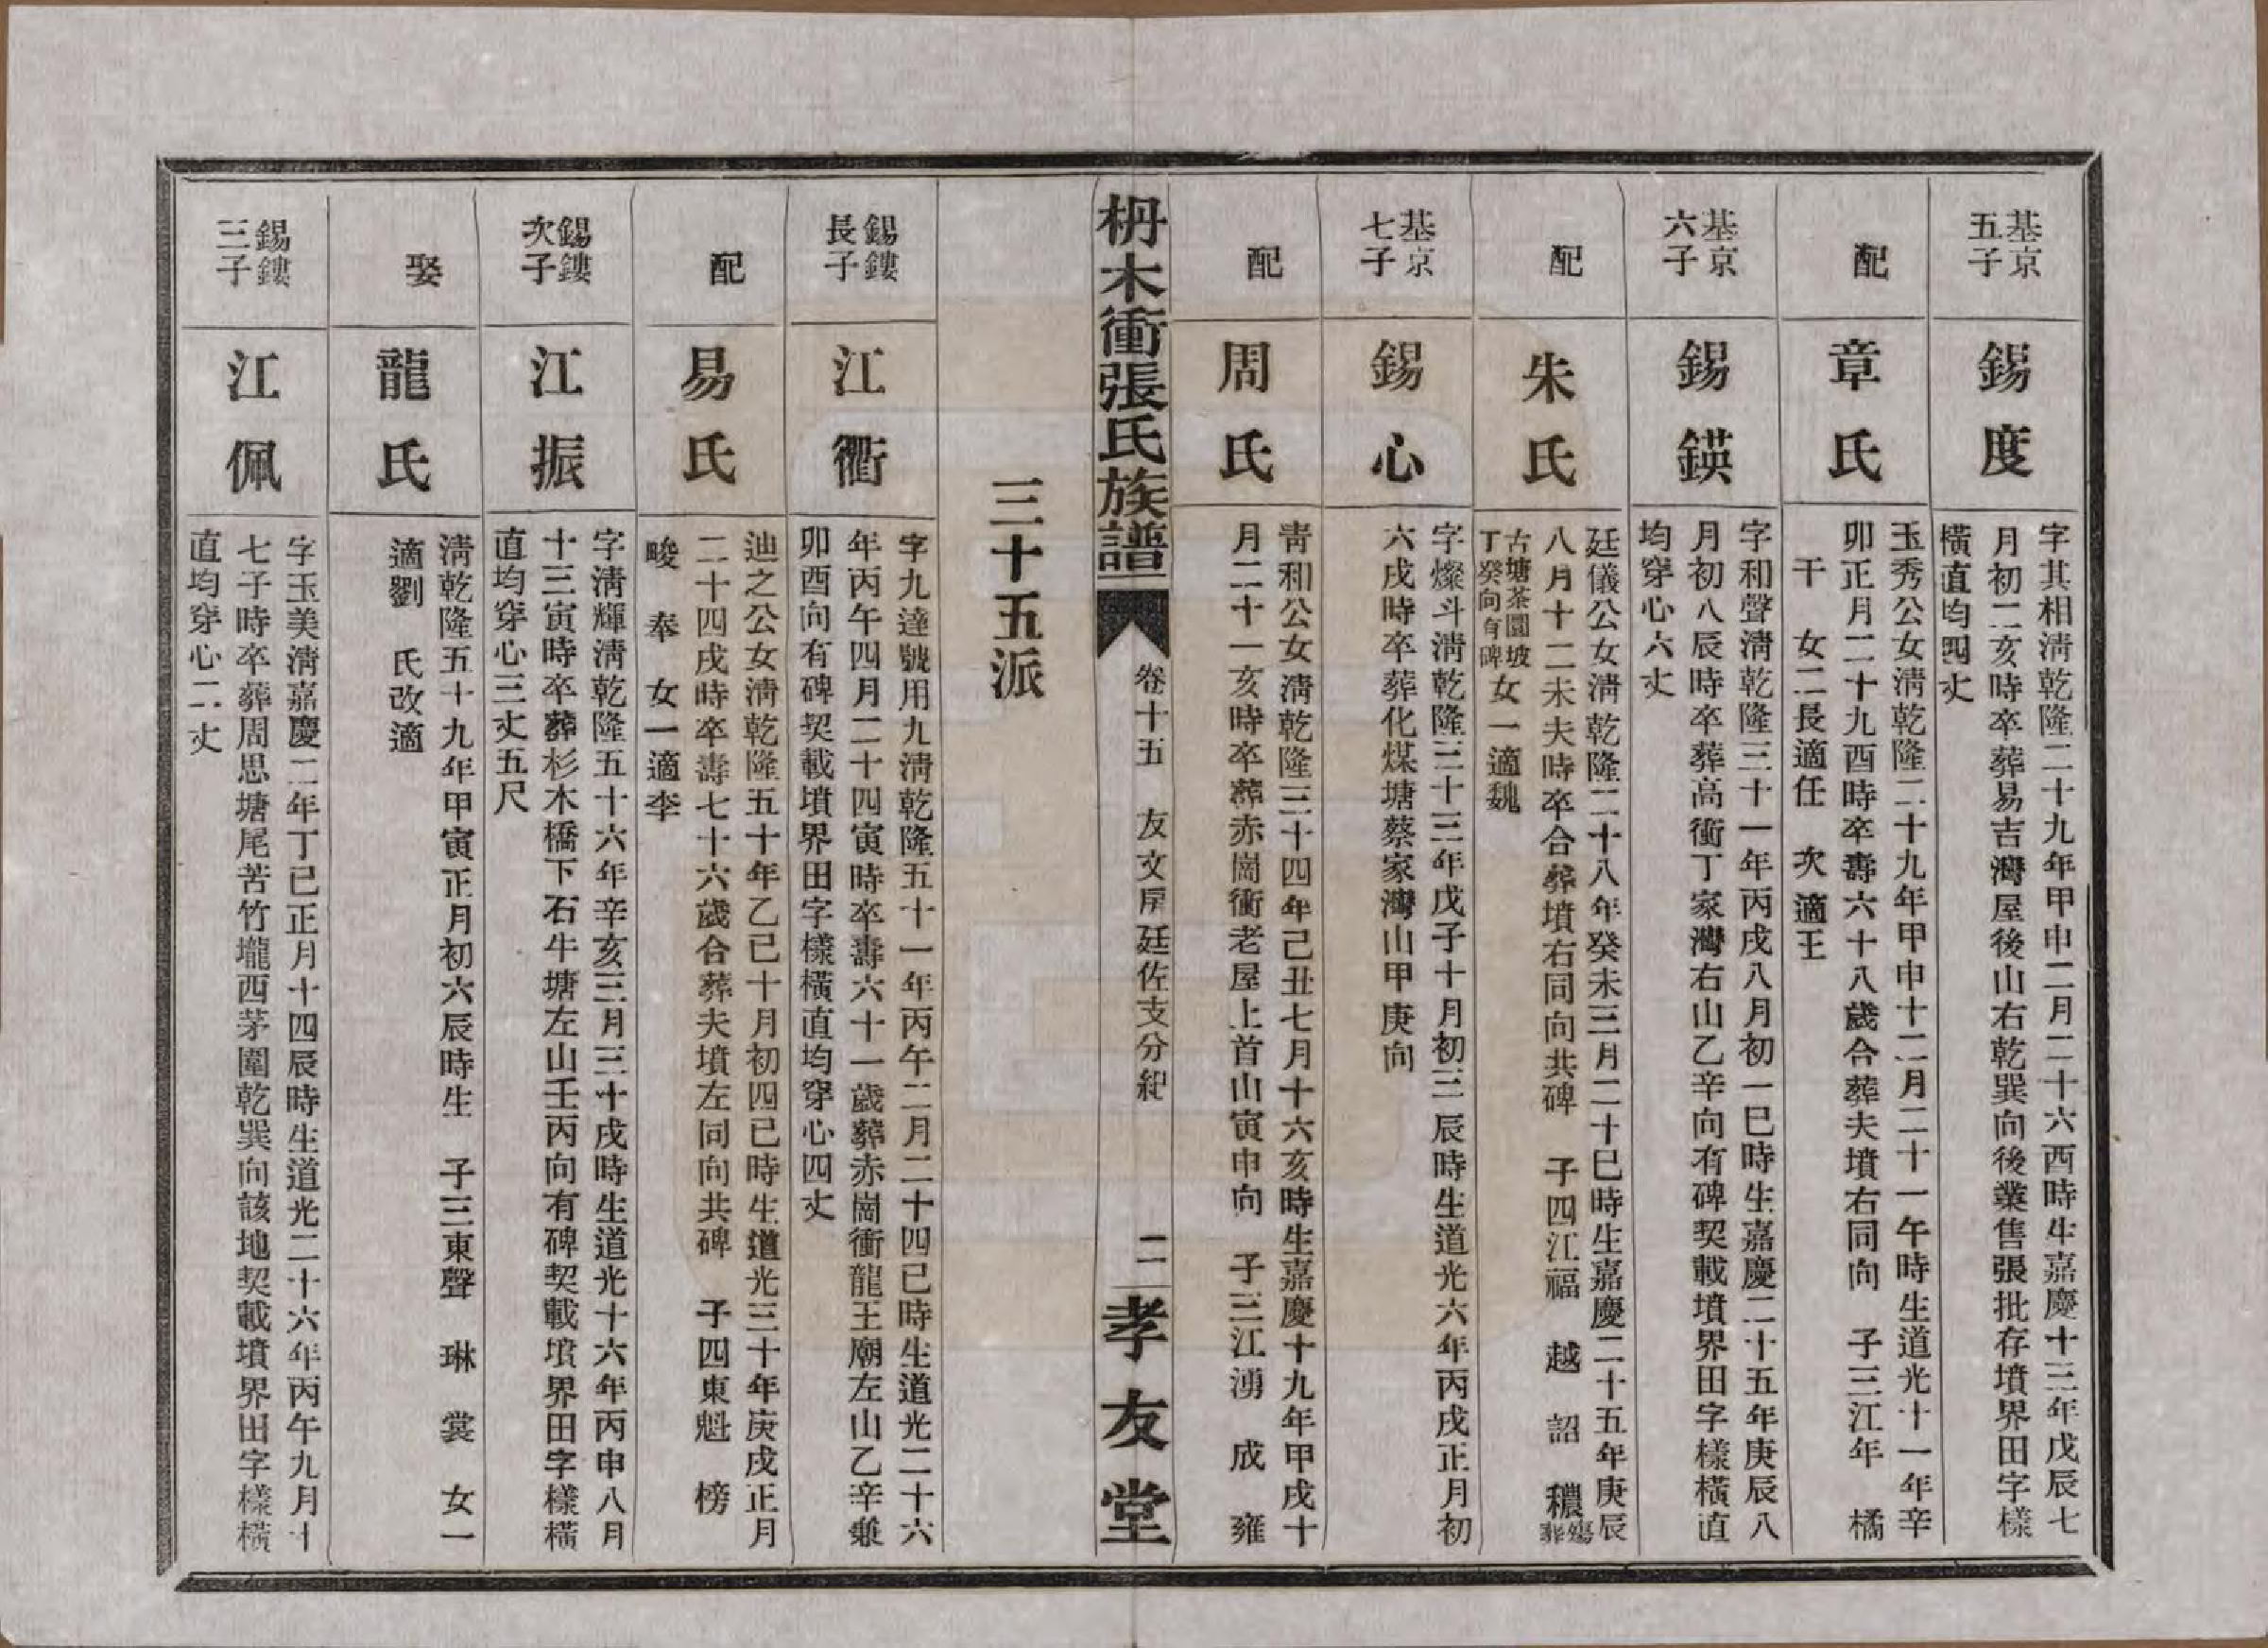 基京
五子
錫度
字其相淸乾隆二十九年甲申二月二十六酉時生嘉慶十三年戊辰七
月初二亥時卒葬易吉灣屋後山右乾巽向後業售張批存墳界田字樣
橫直均四丈
配
章氏
玉秀公女淸乾隆二十九年甲申十二月二十一午時生道光十一年辛
卯正月二十九酉時卒壽六十八歲合葬夫墳右同向　子三江年　橘
干　女二長適任　次適王
基京
六子
錫鍈
字和聲淸乾隆三十一年丙戌八月初一巳時生嘉慶二十五年庚辰八
月初八辰時卒葬高衝丁家灣右山乙辛向有碑契載墳界田字樣橫直
均穿心六丈
配
朱氏
廷儀公女淸乾隆二十八年癸未三月二十巳時生嘉慶二十五年庚辰
八月十二未夫時卒合葬墳右同向共碑　子四江福　越　詔　穠殤葬
古塘茶園坡丁癸向有碑女一適魏
基京
七子
錫心
字燦斗淸乾隆三十三年戊子十月初三辰時生道光六年丙戌正月初
六戌時卒葬化煤塘蔡家灣山甲庚向
配
周氏
靑和公女淸乾隆三十四年己丑七月十六亥時生嘉慶十九年甲戌十
月二十一亥時卒葬赤崗衝老屋上首山寅申向　子三江湧　成　雍
枬木衝張氏族譜
卷十五　友文房廷佐支分紀
二
孝友堂
三十五派
錫鏤
長子
江衢
字九達號用九淸乾隆五十一年丙午二月二十四巳時生道光二十六
年丙午四月二十四寅時卒壽六十一歲葬赤崗衝龍王廟左山乙辛兼
卯酉向有碑契載墳界田字樣橫直均穿心四丈
配
易氏
迪之公女淸乾隆五十年乙巳十月初四巳時生道光三十年庚戌正月
二十四戌時卒壽七十六歲合葬夫墳左同向共碑　子四東魁　榜
畯　奉　女一適李
錫鏤
次子
江振
字淸輝淸乾隆五十六年辛亥三月三十戌時生道光十六年丙申八月
十三寅時卒葬杉木橋下石牛塘左山壬丙向有碑契載墳界田字樣橫
直均穿心三丈五尺
娶
龍氏
淸乾隆五十九年甲寅正月初六辰時生　子三東聲　琳　裳　女一
適劉　氏改適
錫鏤
三子
江佩
字玉美淸嘉慶二年丁巳正月十四辰時生道光二十六年丙午九月十
七子時卒葬周思塘尾苦竹壠西茅圍乾巽向該地契載墳界田字樣橫
直均穿心二丈